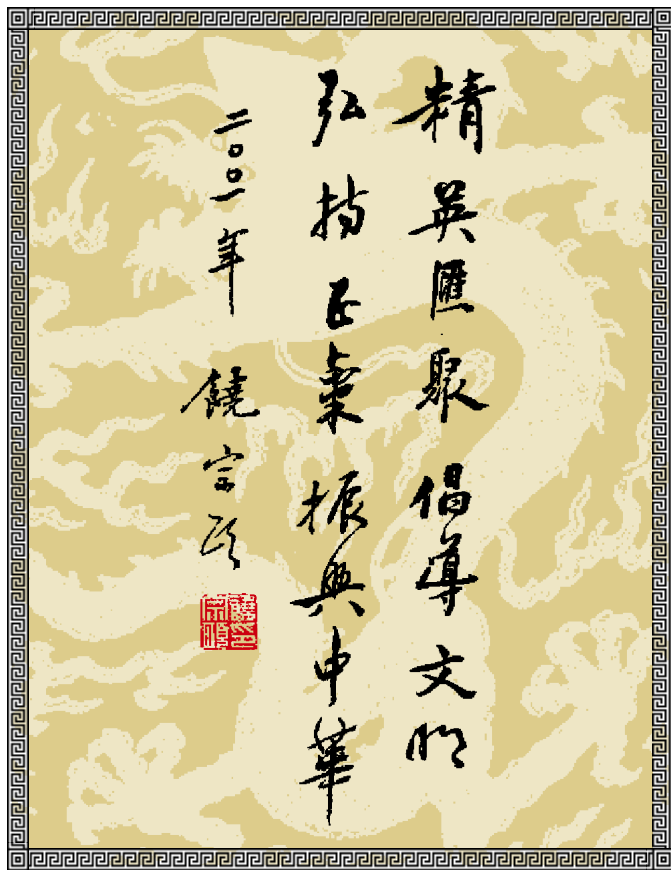 精英匯聚倡導文明
弘揚正氣振興中華
二〇〇一年 饒宗頤
饒宗頤印